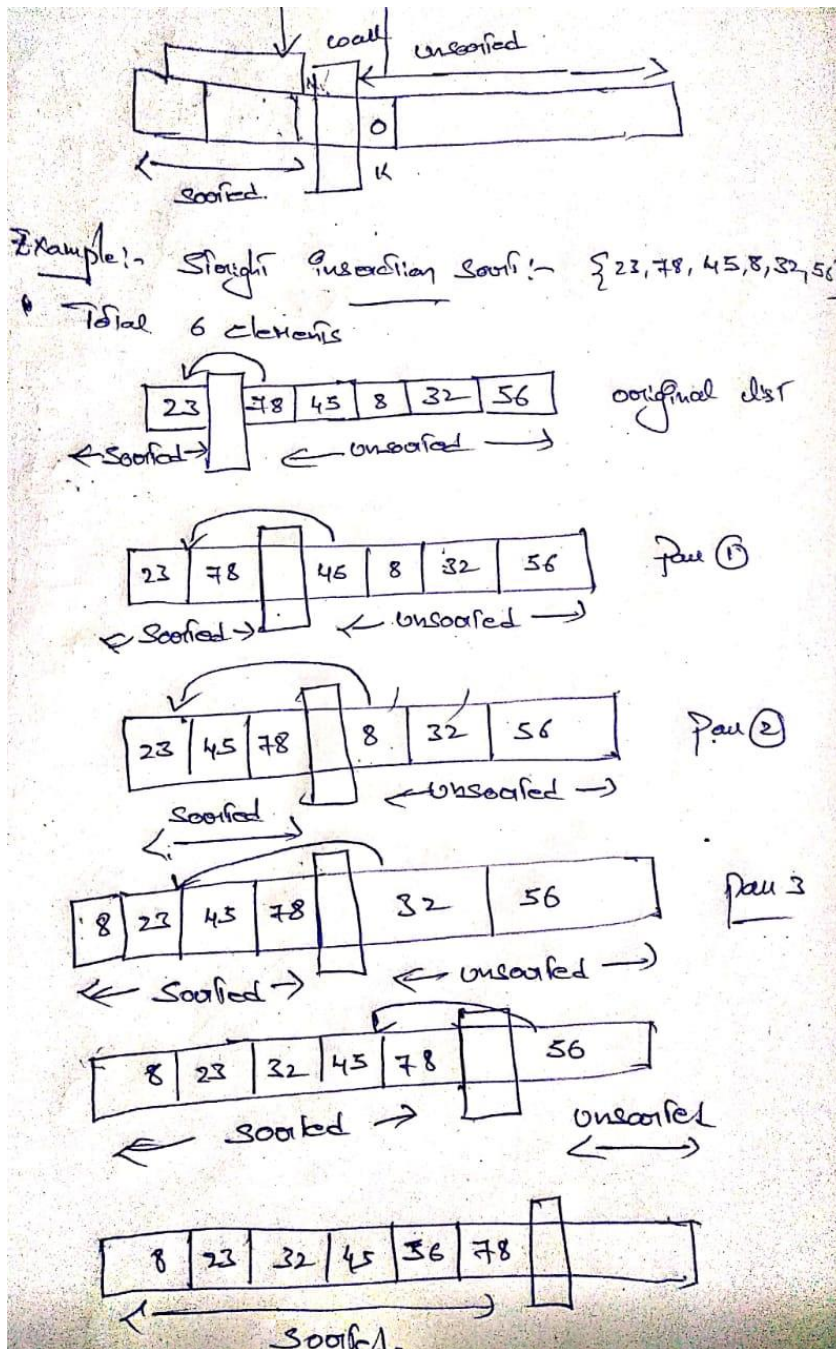 wall unsorted
N
O
sorted. K
Example:- Straight insertion sort:- {23, 78, 45, 8, 32, 56
Total 6 elements
23 78 45 8 32 56 original list
sorted unsorted
23 78 45 8 32 56 Pass ①
sorted unsorted
23 45 78 8 32 56 Pass ②
sorted unsorted
8 23 45 78 32 56 Pass 3
sorted unsorted
8 23 32 45 78 56
sorted unsorted
8 23 32 45 56 78
sorted.